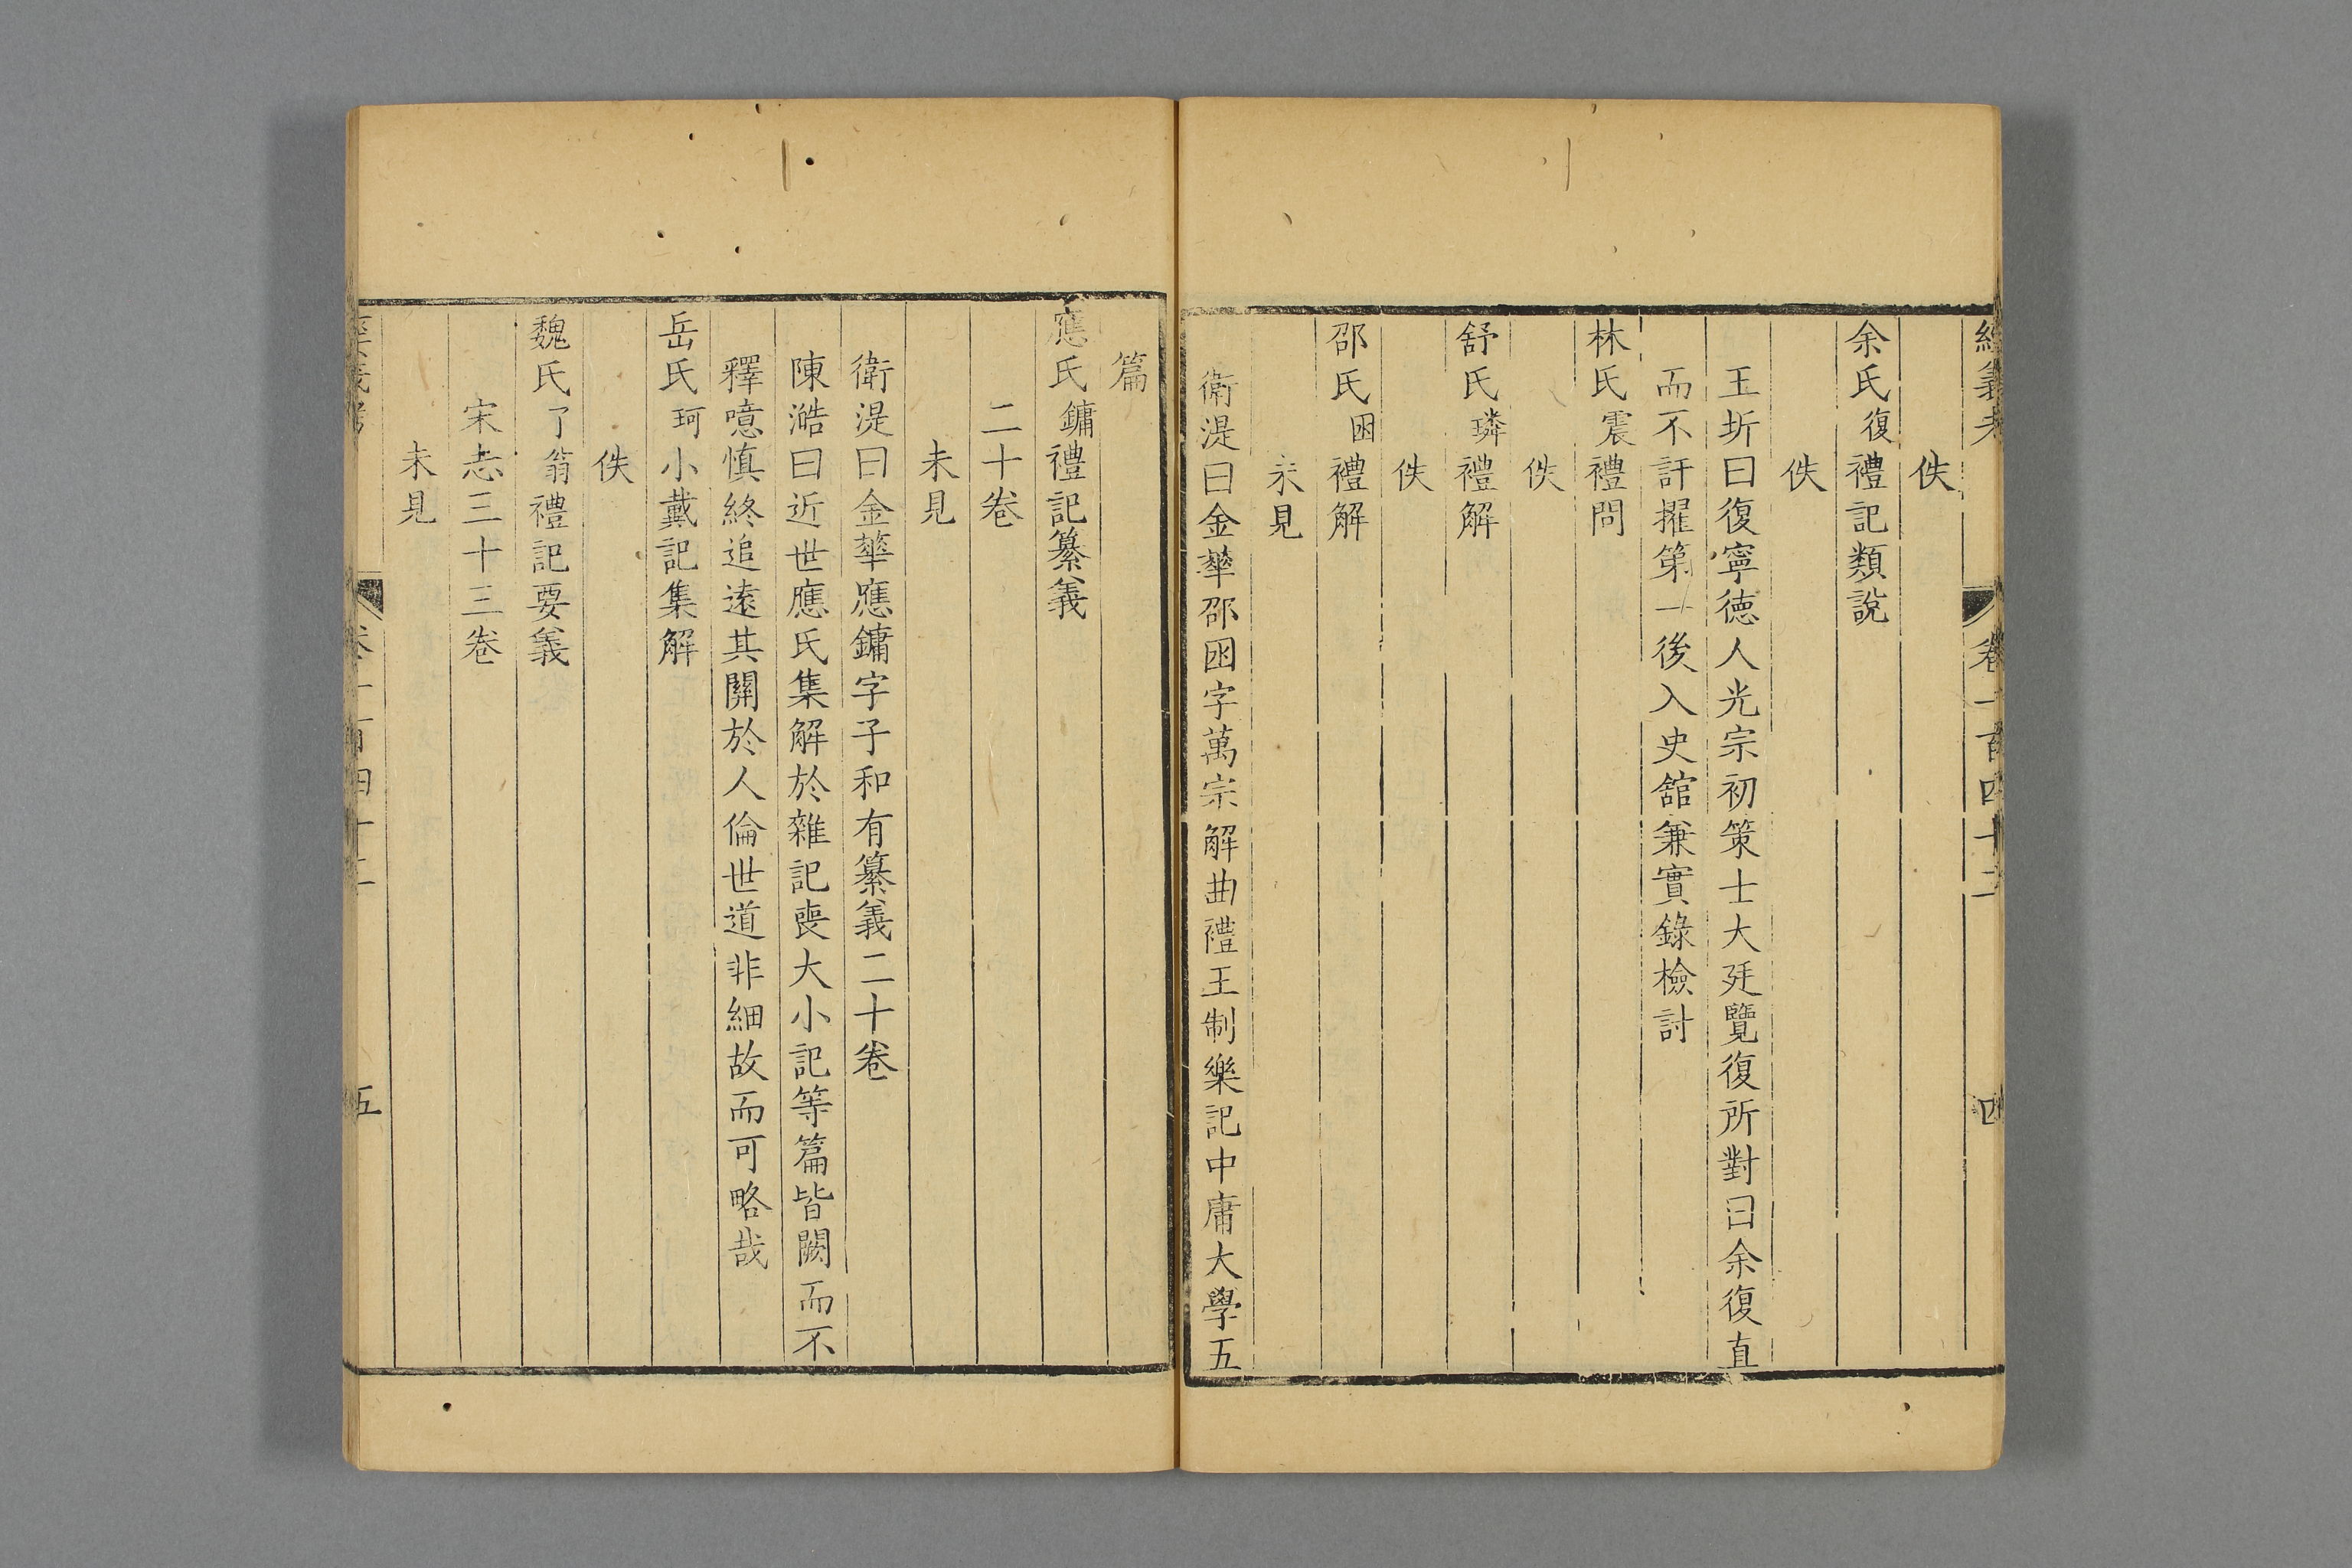 經義考 卷一百四十二 四
佚
余氏復禮記類說
佚
王圻曰復寧德人光宗初策士大廷覽復所對曰余復直
而不訐擢第一後入史舘兼實錄檢討
林氏震禮問
佚
舒氏璘禮解
佚
邵氏囦禮解
未見
衛湜曰金華邵囦字萬宗解曲禮王制樂記中庸大學五
篇
應氏鏞禮記纂義
二十卷
未見
衛湜曰金華應鏞字子和有纂義二十卷
陳澔曰近世應氏集解於雜記喪大小記等篇皆闕而不
釋噫慎終追遠其關於人倫世道非細故而可略哉
岳氏珂小戴記集解
佚
魏氏了翁禮記要義
宋志三十三卷
未見
經義考 卷一百四十二 五